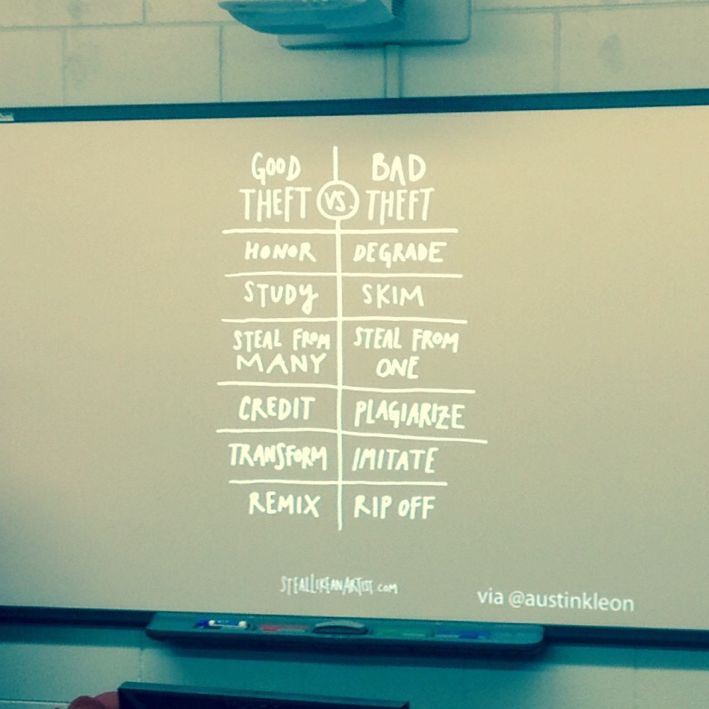 GOOD THEFT VS. BAD THEFT
HONOR DEGRADE
STUDY SKIM
STEAL FROM MANY STEAL FROM ONE
CREDIT PLAGIARIZE
TRANSFORM IMITATE
REMIX RIP OFF
STEALLIKEANARTIST.COM
via @austinkleon